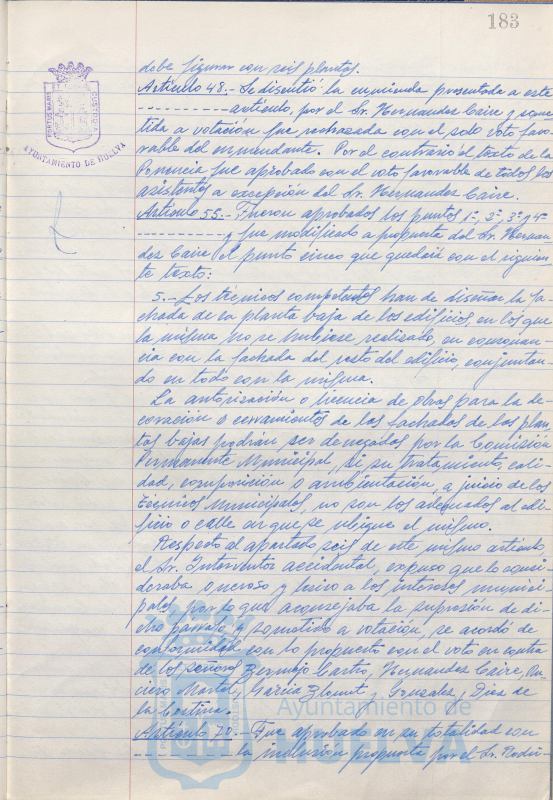 183
PORTUS MARIS CUSTODIA
AYUNTAMIENTO DE HUELVA
debe figurar con seis plantas.
Artículo 48.- Se discutió la enmienda presentada a este
---------- artículo, por el Sr. Hernandez Caire y some
tida a votación fue rechazada con el solo voto favo
rable del enmendante. Por el contrario el texto de la
Ponencia fue aprobado con el voto favorable de todos los
asistentes a excepción del Sr. Hernandez Caire.
Artículo 55.- Fueron aprobados los puntos 1º, 2º, 3º y 4º
---------- y fue modificado a propuesta del Sr. Hernan
dez Caire el punto cinco que quedará con el siguien
te texto:
5.- Los técnicos competentes han de diseñar la fa
chada de la planta baja de los edificios, en los que
la misma no se hubiese realizado, en consonan
cia con la fachada del resto del edificio, conjuntan-
do en todo con la misma.
La autorización o licencia de obras para la de-
coración o cerramientos de las fachadas de las plan
tas bajas podrán ser denegadas por la Comisión
Permanente Municipal, si su tratamiento, cali-
dad, composición o ambientación, a juicio de los
técnicos Municipales, no son los adecuados al edi-
ficio o calle en que se ubique el mismo.
Respecto al apartado seis de este mismo artículo,
el Sr. Interventor accidental, expuso que lo consi-
deraba oneroso y lesivo a los intereses munici-
pales, por lo que aconsejaba la supresión de di-
cho párrafo, y sometido a votación, se acordó de
conformidad con lo propuesto con el voto en contra
de los señores Bermejo Castro, Hernandez Caire,
Martel, Garcia y Gonzalez, Diaz de
la Cortina.
Artículo 70.- Fue aprobado en su totalidad con
---------- la inclusión propuesta por el Sr. Rodri-
Ayuntamiento de
HUELVA